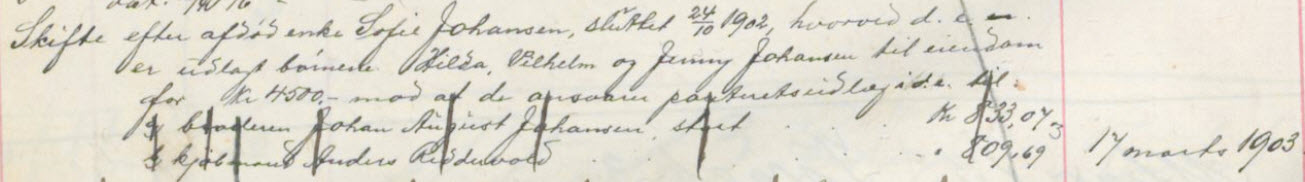 Skifte efter afdød enke Sofie Johansen, sluttet 24/10 1902, hvorved d. e.
er udlagt børnene Hilda, Vilhelm og Jenny Johansen til eiendom
for Kr 4500,- mod at de ansvare panteretsudlæg i d. e. til:
broderen Johan August Johansen, stort . . . Kr 833,07
kjøbmand Anders Riddervold . . . " 809,69 17 marts 1903.